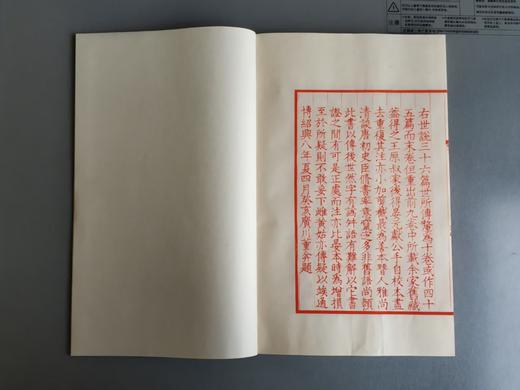 右世說三十六篇世所傳釐為十卷或作四十
五篇而末卷但重出前九卷中所載余家舊藏
蓋得之王原叔家後得晏元獻公手自校本盡
去重復其注亦小加剪截最為善本晉人雅尚
清談唐初史臣脩書率意竄定多非舊語尚賴
此書以傳後世然字有譌舛語有難解以它書
證之間有可是正處而注亦比晏本時為增損
至於所疑則不敢妄下雌黃姑亦傳疑以竢通
博紹興八年夏四月癸亥廣川董弅題